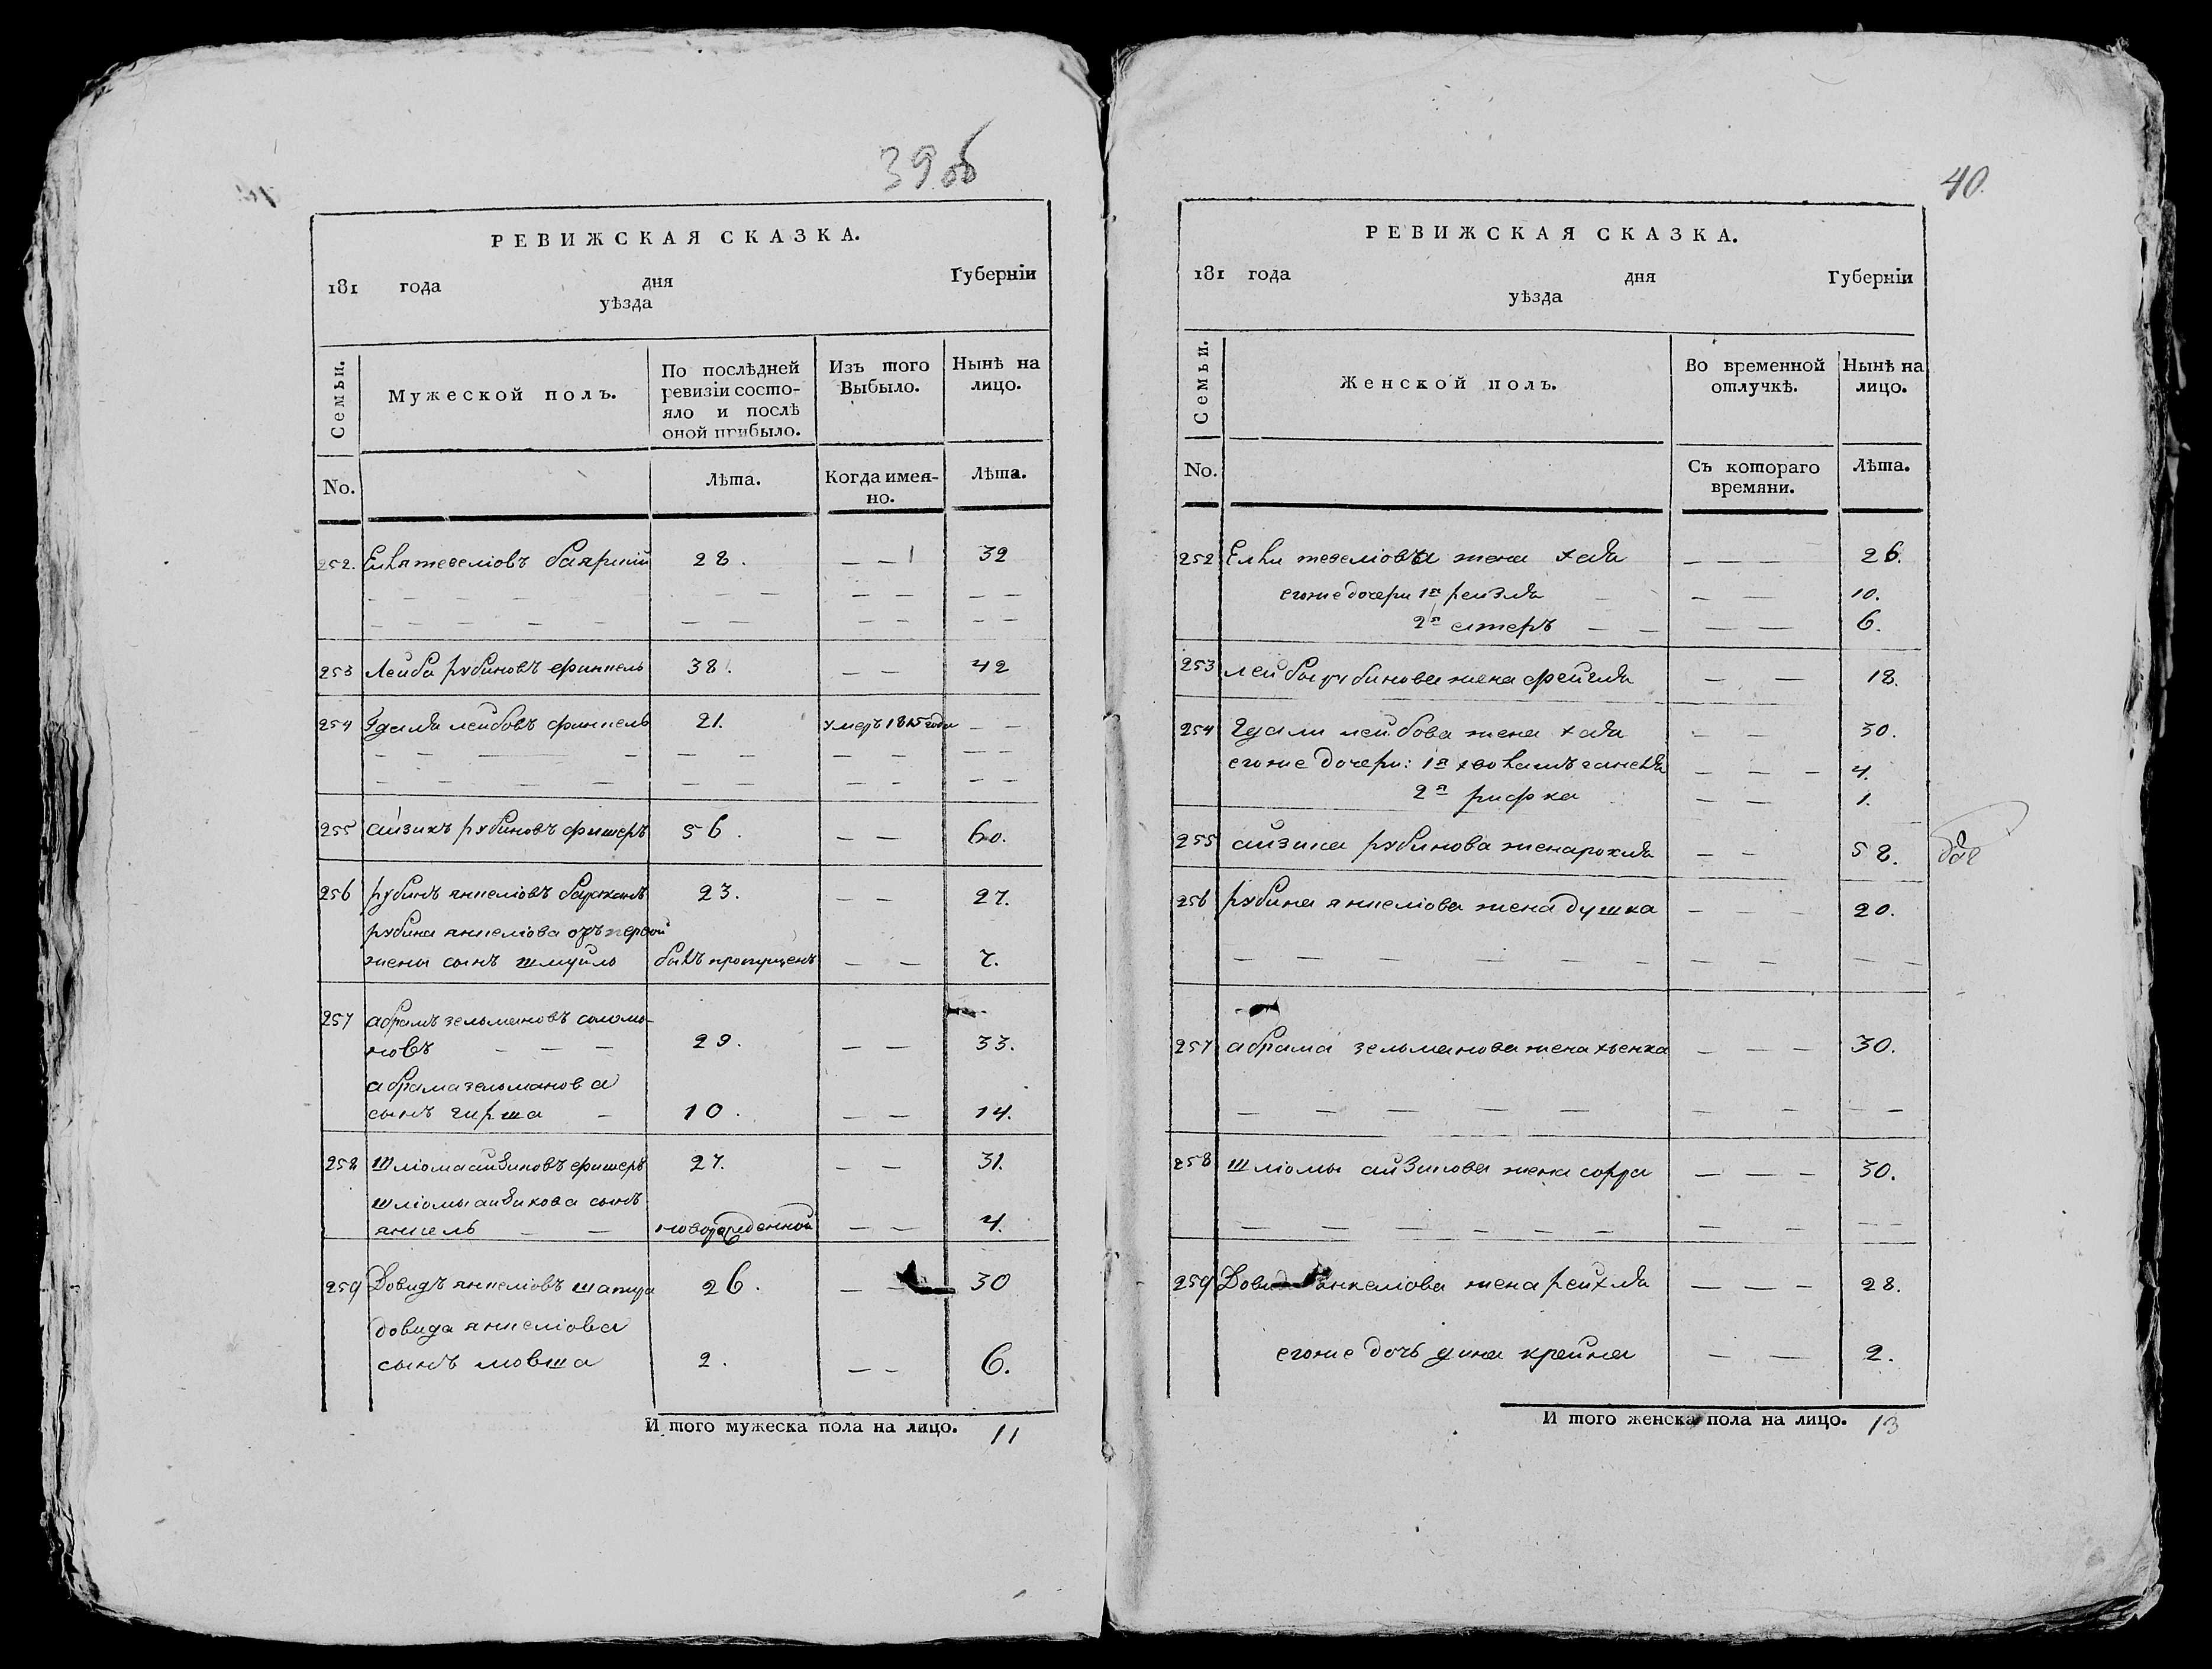 39 об
РЕВИЖСКАЯ СКАЗКА.
181 года дня Губерніи
уѣзда
Семьи. Мужеской полъ. По послѣдней ревизіи состояло и послѣ оной прибыло. Изъ того Выбыло. Нынѣ на лицо.
No. Лѣта. Когда именно. Лѣта.
252. Елья тевеліовъ 28. — — 32
253 Лейба рубиновъ финкель 38. — — 42
254 Гдаля лейбовъ финкель 21. умеръ 1815 года — —
255 айзикъ рубиновъ фишеръ 56. — — 60.
256 рубинъ янкеліовъ 23. — — 27.
рубина янкеліова отъ первой
жены сынъ шмуйло былъ пропущенъ — — 7.
257 абрамъ зельмановъ соломо-
новъ — — — 29. — — 33.
абрама зельманова
сынъ гирша — 10. — — 14.
258 шліома айзиковъ фишеръ 27. — — 31.
шліомы айзикова сынъ
янкель — — новорожденной — — 4.
259 Довидъ янкеліовъ шапира 26. — — 30
довида янкеліова
сынъ мовша 2. — — 6.
И того мужеска пола на лицо. 11
40.
РЕВИЖСКАЯ СКАЗКА.
181 года дня Губерніи
уѣзда
Семьи. Женской полъ. Во временной отлучкѣ. Нынѣ на лицо.
No. Съ котораго времяни. Лѣта.
252 Ельи тевеліова жена хая — — — 26.
егоже дочери 1я рейзля — — — 10.
2я естеръ — — — — 6.
253 лейбы рубинова жена фейгля — — 18.
254 Гдали лейбова жена хая — — 30.
егоже дочери: 1я — — — 4.
2я рифка — — 1.
255 айзика рубинова жена рохля — — 58.
256 рубина янкеліова жена душка — — — 20.
257 абрама зельманова жена хенка — — — 30.
258 шліомы айзикова жена сорра — — — 30.
259 Довида янкеліова жена рейхля — — — 28.
егоже дочь дина крейна — — 2.
И того женска пола на лицо. 13